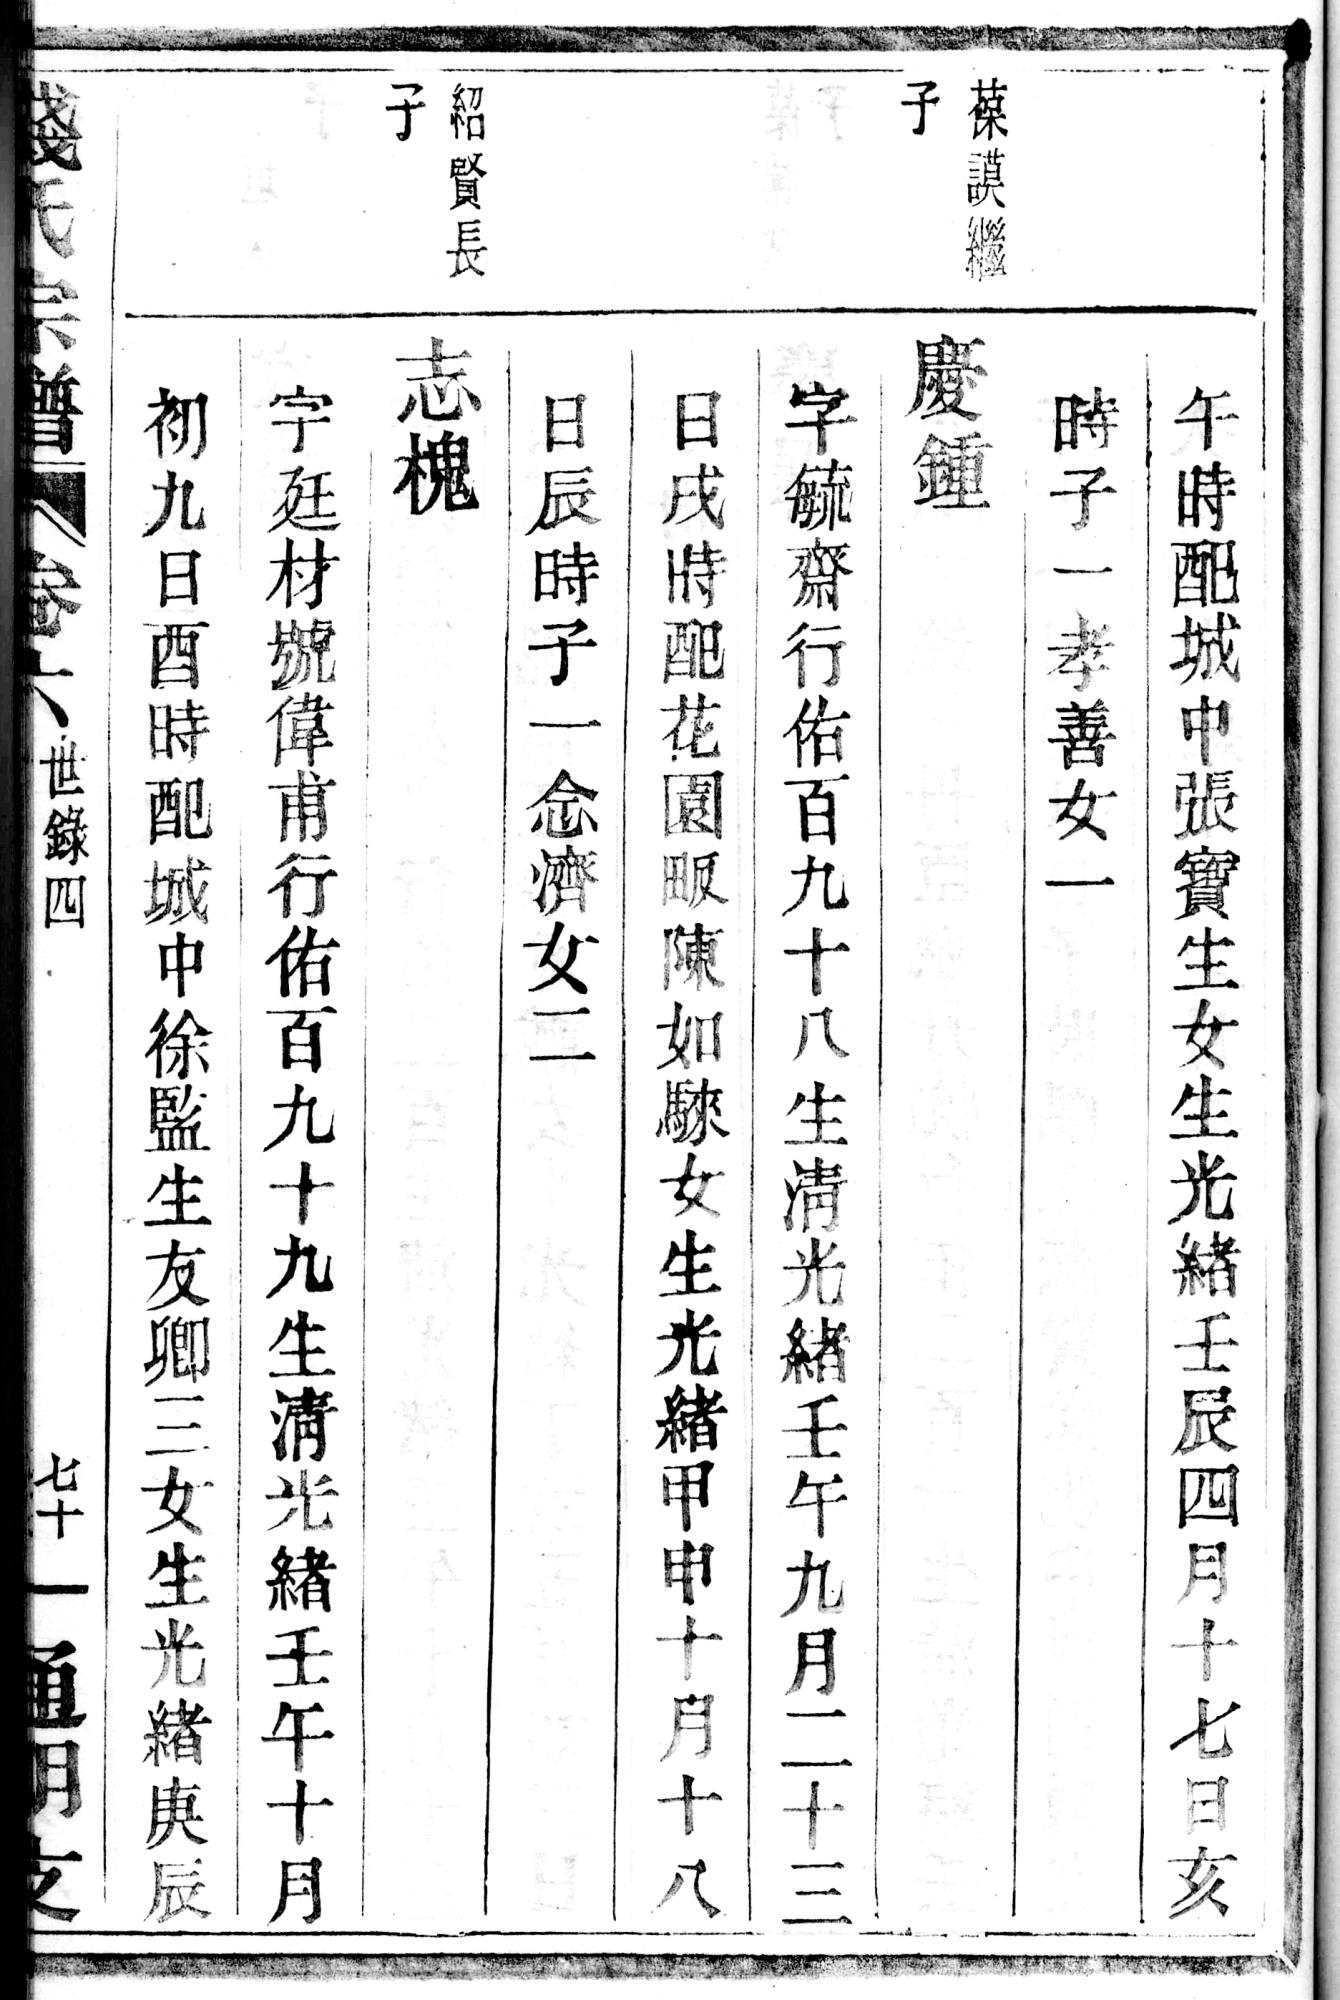 午時配城中張寶生女生光緒壬辰四月十七日亥
時子一孝善女一
葆謨繼
子
慶鍾
字毓齋行佑百九十八生清光緒壬午九月二十三
日戌時配花園畈陳如騋女生光緒甲申十月十八
日辰時子一念濟女二
紹賢長
子
志槐
字廷材號偉甫行佑百九十九生清光緒壬午十月
初九日酉時配城中徐監生友卿三女生光緒庚辰
錢氏宗譜 卷六 世錄四 七十一 通明支